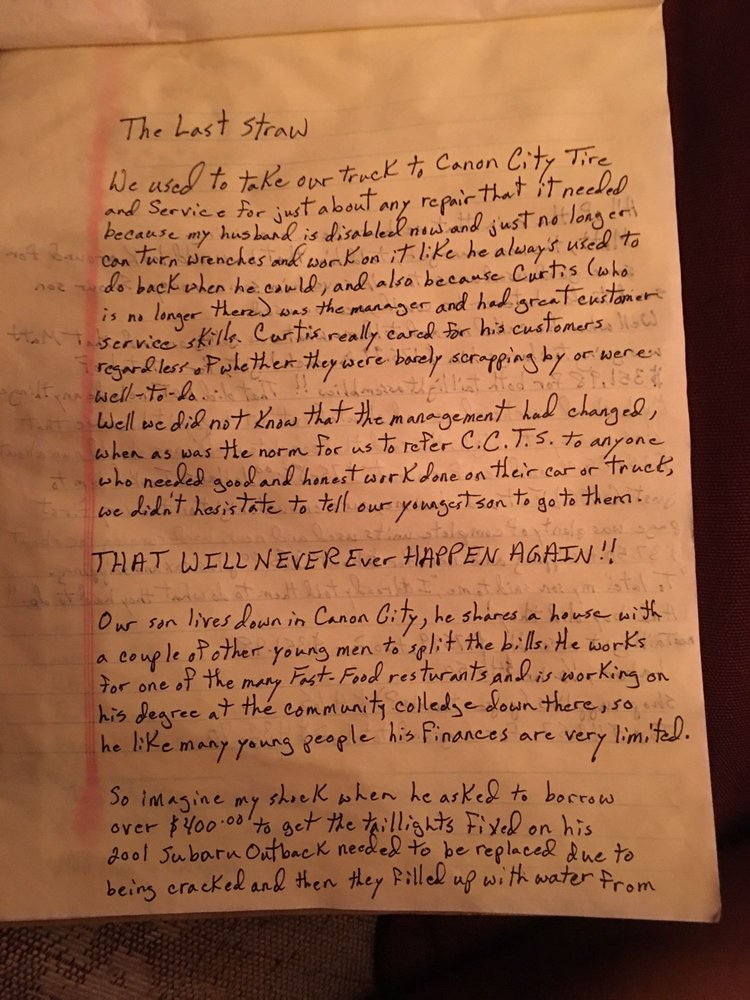 The Last Straw
We used to take our truck to Canon City Tire
and Service for just about any repair that it needed
because my husband is disabled now and just no longer
can turn wrenches and work on it like he always used to
do back when he could, and also because Curtis (who
is no longer there) was the manager and had great customer
service skills. Curtis really cared for his customers
regardless of whether they were barely scrapping by or were
well-to-do.
Well we did not know that the management had changed,
when as was the norm for us to refer C.C.T.S. to anyone
who needed good and honest work done on their car or truck,
we didn't hesistate to tell our youngest son to go to them.
THAT WILL NEVER Ever HAPPEN AGAIN!!
Our son lives down in Canon City, he shares a house with
a couple of other young men to split the bills. He works
for one of the many Fast-Food resturants and is working on
his degree at the community colledge down there, so
he like many young people his finances are very limited.
So imagine my shock when he asked to borrow
over $400.00 to get the taillights fixed on his
2001 Subaru Outback needed to be replaced due to
being cracked and then they filled up with water from